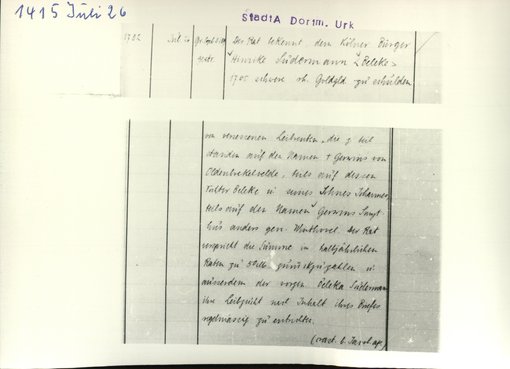 1415 Juli 26
StadtA Dortm. Urk
Der Rat bekennt dem Kölner Bürger
Hinrike Südermann Beleke
1705 schwere rh. Goldgld zu schulden
von versessenen Leibrenten, die z. teil
standen auf den Namen + Gerwins von
teils auf dessen
Tochter Beleke u. seines Sohnes Johannes
teils auf den Namen Gerwins
anders gen. Der Rat
verspricht die Summe in halbjährlichen
Raten zu zurückzuzahlen u.
ausserdem der vorgen. Beleka Südermann
ihre Leibzucht nach Inhalt ihres Briefes
regelmässig zu entrichten.